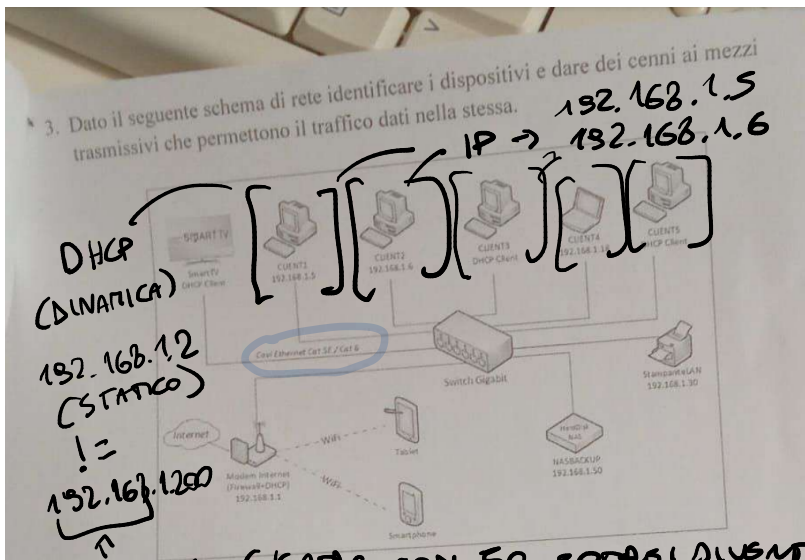 * 3. Dato il seguente schema di rete identificare i dispositivi e dare dei cenni ai mezzi
trasmissivi che permettono il traffico dati nella stessa.
192.168.1.5
IP → 192.168.1.6
DHCP
(DINAMICA)
192.168.1.2
(STATICO)
!=
192.168.1.200
SMART TV
SmartTV
DHCP Client
CLIENT1
192.168.1.5
CLIENT2
192.168.1.6
CLIENT3
DHCP Client
CLIENT4
CLIENT5
DHCP Client
Cavi Ethernet Cat 5E / Cat 6
Switch Gigabit
StampanteLAN
192.168.1.30
Internet
WiFi
Tablet
WiFi
Modem Internet
(Firewall+DHCP)
192.168.1.1
Smartphone
NAS
NASBACKUP
192.168.1.50
CON